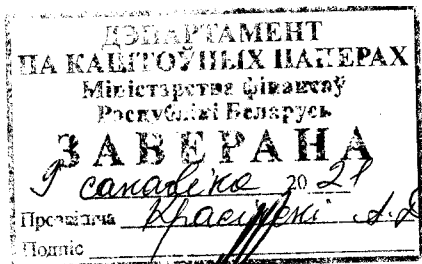 ДЭПАРТАМЕНТ
ПА КАШТОЎНЫХ ПАПЕРАХ
Міністэрства фінансаў
Рэспублікі Беларусь
ЗАВЕРАНА
9 сакавіка 2021
Прозвішча Красінскі А.Д
Подпіс